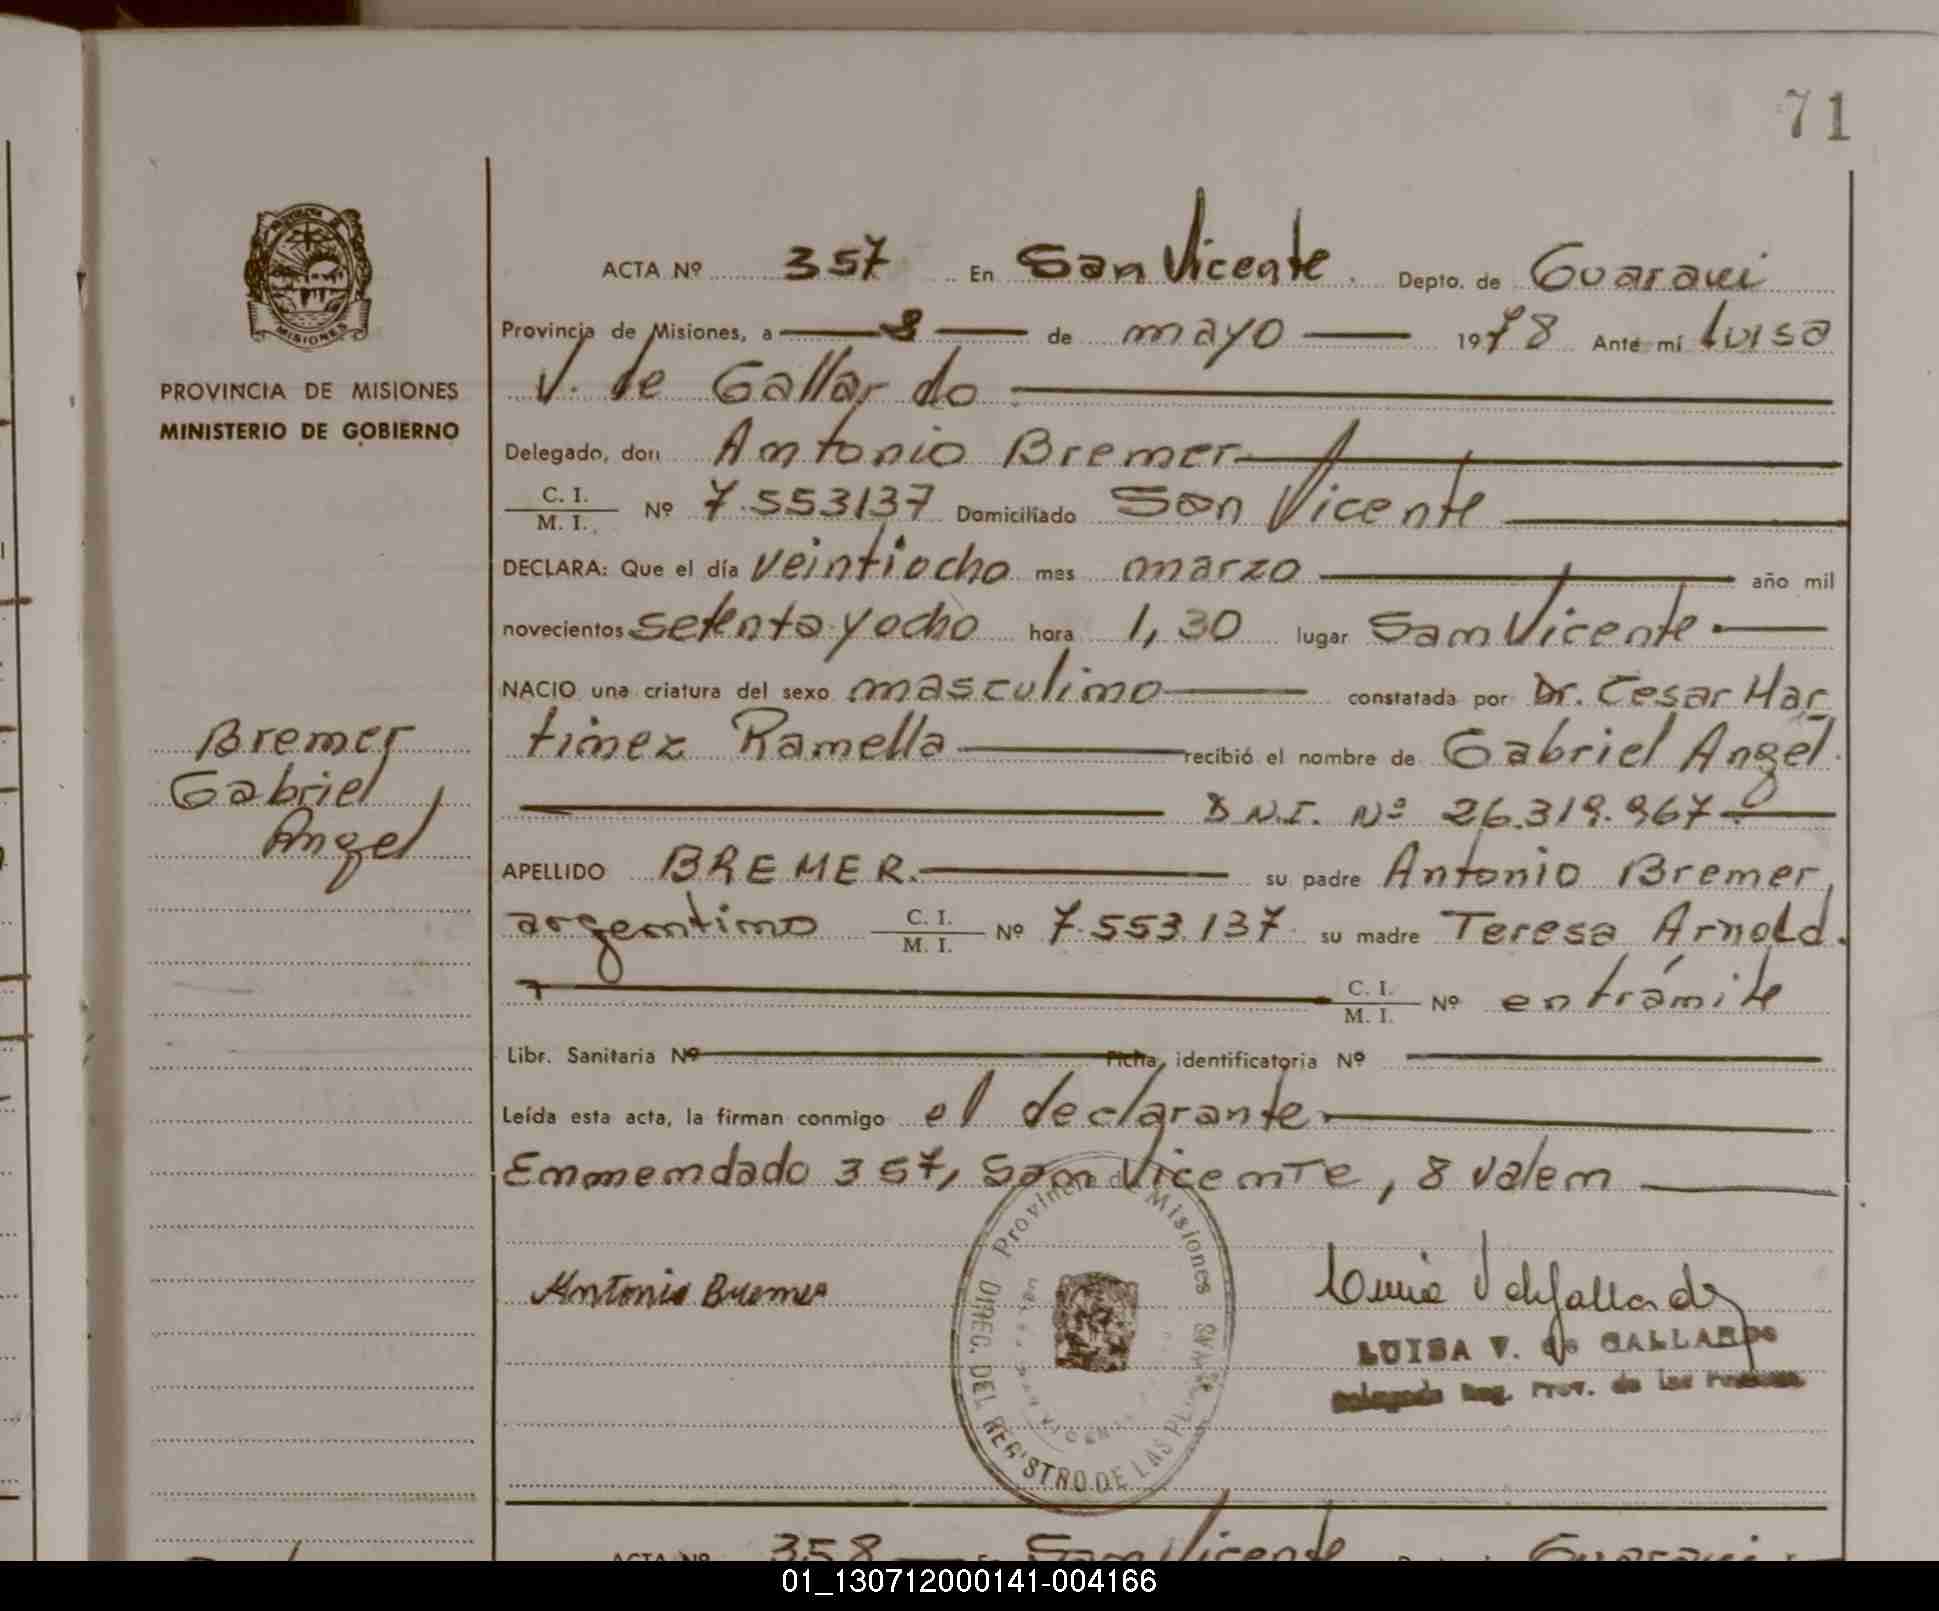 71
MISIONES
PROVINCIA DE MISIONES
MINISTERIO DE GOBIERNO
Bremer
Gabriel
Angel
ACTA Nº 357 En San Vicente. Depto. de Guarani
Provincia de Misiones, a 8 de mayo 1978 Ante mí Luisa
V. de Gallardo
Delegado, don Antonio Bremer
C. I.
M. I. Nº 7.553137 Domiciliado San Vicente
DECLARA: Que el día veintiocho mes marzo año mil
novecientos setenta y ocho hora 1,30 lugar San Vicente.
NACIO una criatura del sexo masculino constatada por Dr. Cesar Mar
tinez Ramella recibió el nombre de Gabriel Angel.
D.N.I. Nº 26.319.967
APELLIDO BREMER. su padre Antonio Bremer,
argentino C. I. M. I. Nº 7.553.137 su madre Teresa Arnold.
C. I. M. I. Nº en trámite
Libr. Sanitaria Nº Ficha identificatoria Nº
Leída esta acta, la firman conmigo el declarante.
Enmendado 357, San Vicente, 8 valen
Provincia de Misiones
DIREC. DEL REGISTRO DE LAS
Antonio Bremer
LUISA V. de GALLARDO
Delegada Reg. Prov. de las Personas
ACTA Nº 358 En San Vicente Guarani
01_130712000141-004166